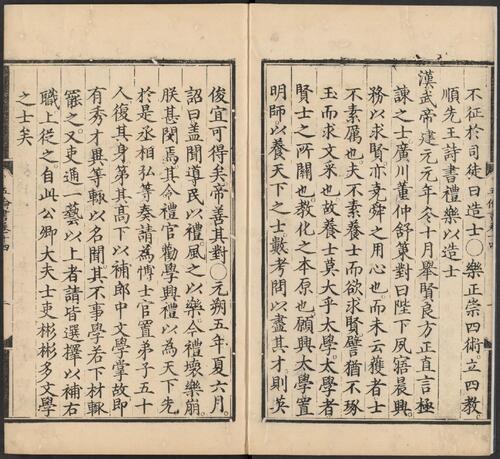 不征於司徒曰造士○樂正崇四術立四教
順先王詩書禮樂以造士
漢武帝建元元年冬十月舉賢良方正直言極
諫之士廣川董仲舒策對曰陛下夙寤晨興
務以求賢亦堯舜之用心也而未云獲者士
不素厲也夫不素養士而欲求賢譬猶不琢
玉而求文采也故養士莫大乎太學太學者
賢士之所關也教化之本原也願興太學置
明師以養天下之士數考問以盡其才則英
俊宜可得矣帝善其對○元朔五年夏六月
詔曰盖聞導民以禮風之以樂今禮壞樂崩
朕甚閔焉其令禮官勸學興禮以為天下先
於是丞相弘等奏請為博士官置弟子五十
人復其身第其高下以補郎中文學掌故即
有秀才異等輙以名聞其不事學若下材輙
罷之又吏通一藝以上者請皆選擇以補右
職上從之自此公卿大夫士吏彬彬多文學
之士矣